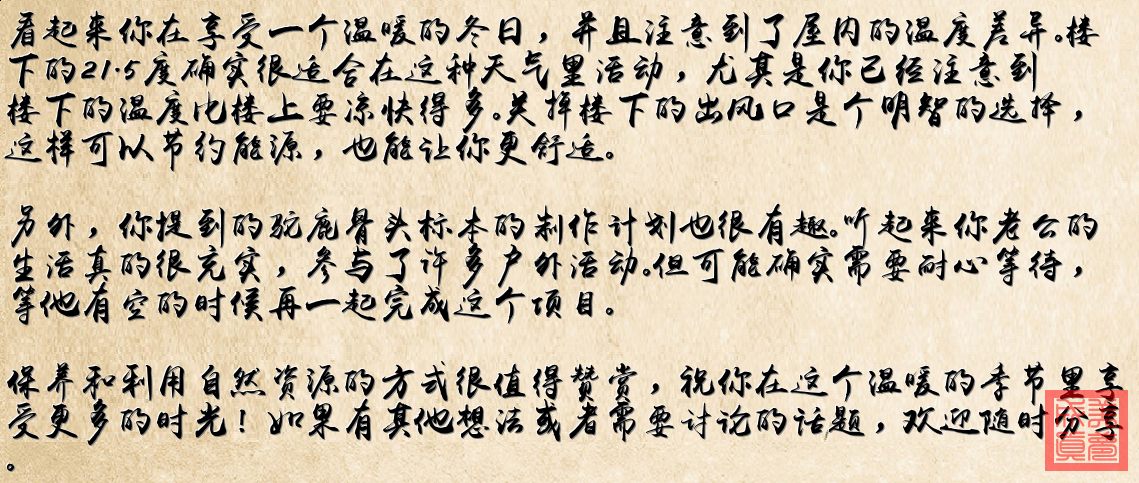 看起来你在享受一个温暖的冬日，并且注意到了屋内的温度差异。楼
下的21.5度确实很适合在这种天气里活动，尤其是你已经注意到
楼下的温度比楼上要凉快得多。关掉楼下的出风口是个明智的选择，
这样可以节约能源，也能让你更舒适。
另外，你提到的驼鹿骨头标本的制作计划也很有趣。听起来你老公的
生活真的很充实，参与了许多户外活动。但可能确实需要耐心等待，
等他有空的时候再一起完成这个项目。
保养和利用自然资源的方式很值得赞赏，祝你在这个温暖的季节里享
受更多的时光！如果有其他想法或者需要讨论的话题，欢迎随时分享
。